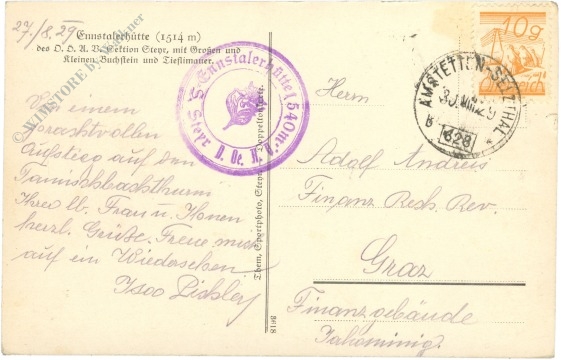 27./8.29
Ennstalerhütte (1514 m)
des D. Ö. A. V. Sektion Steyr, mit Großen und
Kleinen Buchstein und Tieflimauer.
© WIMSTORE by
Ennstalerhütte 1540m.
S. Steyr D. Oe. A. V.
10g
AMSTETTEN-SELZTHAL
30.VIII.29
B 628 *
Von einem
prachtvollen
Aufstieg auf den
Tamischbachthurm
Ihrer lb. Frau u. Ihnen
herzl. Grüße. Freue mich
auf ein Wiedersehen
Herrn
Adolf Andreis
Finanz Rech. Rev.
Graz
Finanzgebäude
Jakominig.
Sportphoto, Steyr.
5618